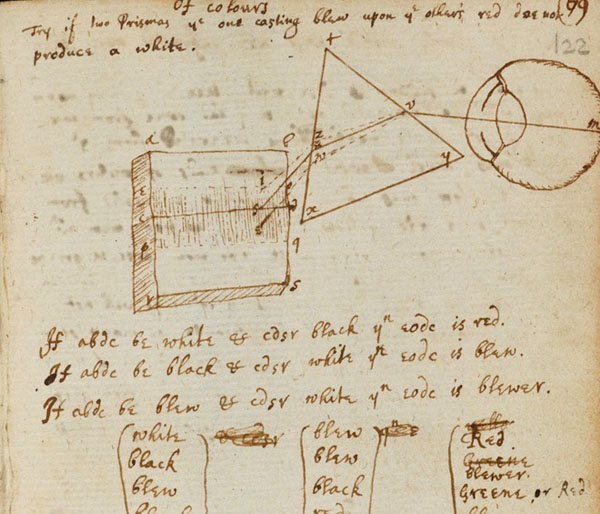 Of colours
99
Try if two Prismas yᵉ one casting blew upon yᵉ other's red doe not
produce a white.
122
If abdc be white & cdsr black yⁿ eodc is red.
If abdc be black & cdsr white yⁿ eodc is blew.
If abdc be blew & cdsr white yⁿ eodc is blewer.
white blew Red
black blew Greene
blewer.
blew black Greene, or Red
black red